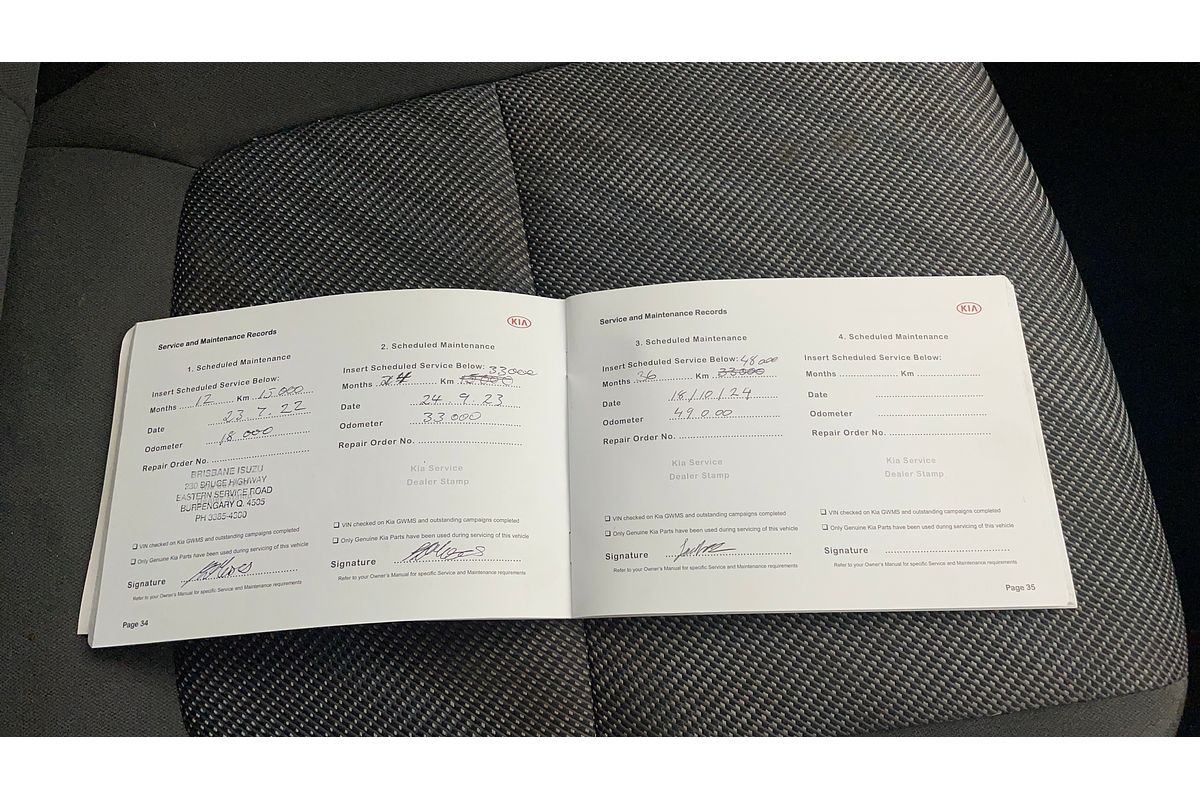 Service and Maintenance Records
KIA
1. Scheduled Maintenance
Insert Scheduled Service Below:
Months 12 Km 15.000
Date 23 7. 22
Odometer 18 000
Repair Order No.
BRISBANE ISUZU
BRUCE HIGHWAY
EASTERN SERVICE ROAD
BURPENGARY Q. 4505
PH
VIN checked on Kia GWMS and outstanding campaigns completed
Only Genuine Kia Parts have been used during servicing of this vehicle
Signature
Refer to your Owner's Manual for specific Service and Maintenance requirements
Page 34
2. Scheduled Maintenance
Insert Scheduled Service Below: 33000
Months 24 Km
Date 24. 9. 23
Odometer 33 000
Repair Order No.
Kia Service
Dealer Stamp
VIN checked on Kia GWMS and outstanding campaigns completed
Only Genuine Kia Parts have been used during servicing of this vehicle
Signature
Refer to your Owner's Manual for specific Service and Maintenance requirements
Service and Maintenance Records
KIA
3. Scheduled Maintenance
Insert Scheduled Service Below: 48 000
Months 36 Km 33000
Date 18/10/24
Odometer 49 000
Repair Order No.
Kia Service
Dealer Stamp
VIN checked on Kia GWMS and outstanding campaigns completed
Only Genuine Kia Parts have been used during servicing of this vehicle
Signature
Refer to your Owner's Manual for specific Service and Maintenance requirements
4. Scheduled Maintenance
Insert Scheduled Service Below:
Months Km
Date
Odometer
Repair Order No.
Kia Service
Dealer Stamp
VIN checked on Kia GWMS and outstanding campaigns completed
Only Genuine Kia Parts have been used during servicing of this vehicle
Signature
Refer to your Owner's Manual for specific Service and Maintenance requirements
Page 35